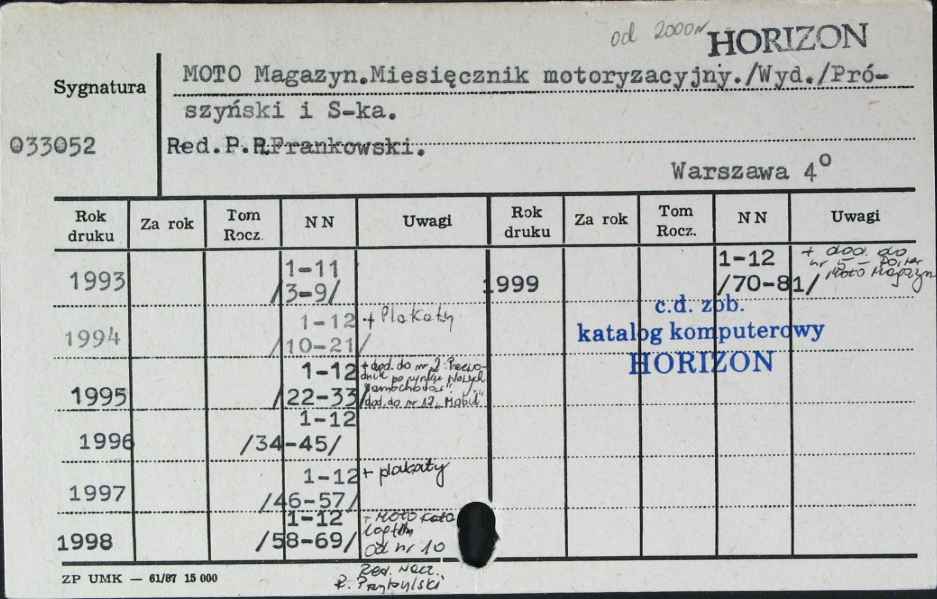 od 2000r HORIZON
Sygnatura
MOTO Magazyn.Miesięcznik motoryzacyjny./Wyd./Pró-
szyński i S-ka.
033052
Red.P.R.Frankowski.
Warszawa 4°
Rok druku Za rok Tom Rocz. N N Uwagi Rok druku Za rok Tom Rocz. N N Uwagi
1993 1-11 /3-9/
1999 1-12 /70-81/ + dod. do nr 5 – Moto Magazyn
1994 1-12 /10-21/ + Plakaty
c.d. zob.
katalog komputerowy
HORIZON
1995 1-12 /22-33/ + dod. do nr 2 Przewodnik po rynku Nowych Samochodów, dod. do nr 12 „Mobil"
1996 1-12 /34-45/
1997 1-12 /46-57/ + plakaty
1998 1-12 /58-69/ + MOTO od nr 10
Red. Nacz.
R. Przybylski
ZP UMK — 61/87 15 000